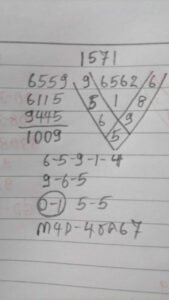 1571
6559 9 6562 6
6115 5 1 8
9445 6 9
1009 5
6-5-9-1-4
9-6-5
0-1 5-5